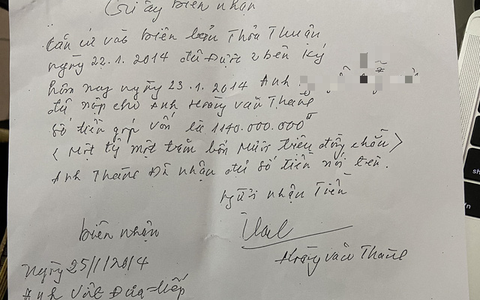 Giấy biên nhận
Căn cứ vào biên bản Thỏa Thuận
ngày 22.1.2014 đã được 2 bên ký
hôm nay ngày 23.1.2014 Anh
đã nộp cho Anh Hoàng văn Thắng
Số tiền góp vốn là 1140.000.000đ
< Một tỷ một trăm bốn mươi triệu đồng chẵn >
Anh Thắng Đã nhận đủ số tiền nói trên.
người nhận Tiền
biên nhận
Hoàng văn Thắng
ngày 25/1/2014
Anh Việt Đưa tiếp